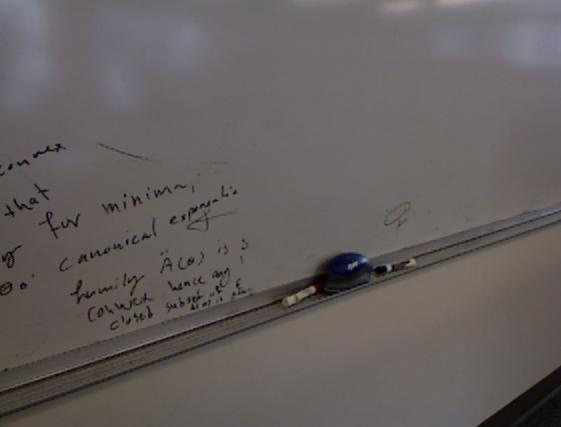 convex
that
for minima,
θ₀. canonical exponential
family Ä(θ) is
convex hence any
closed subset of